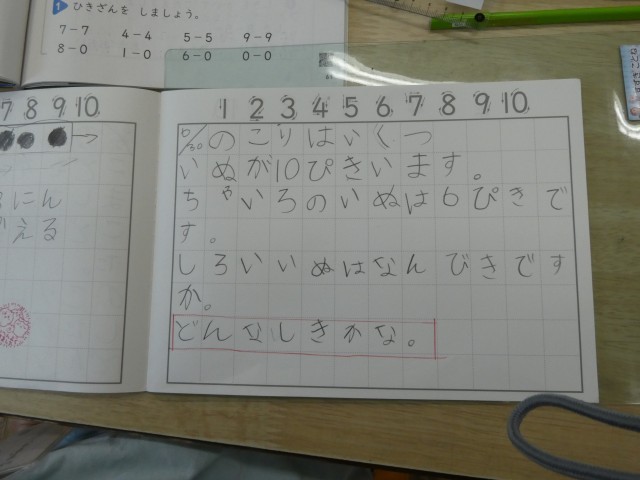 1 ひきざんを しましょう。
7-7 4-4 5-5 9-9
8-0 1-0 6-0 0-0
7 8 9 10
にん
える
1 2 3 4 5 6 7 8 9 10
のこりはいくつ
いぬが10ぴきいます。
ちゃいろのいぬは6ぴきで
す。
しろいいぬはなんびきです
か。
どんなしきかな。